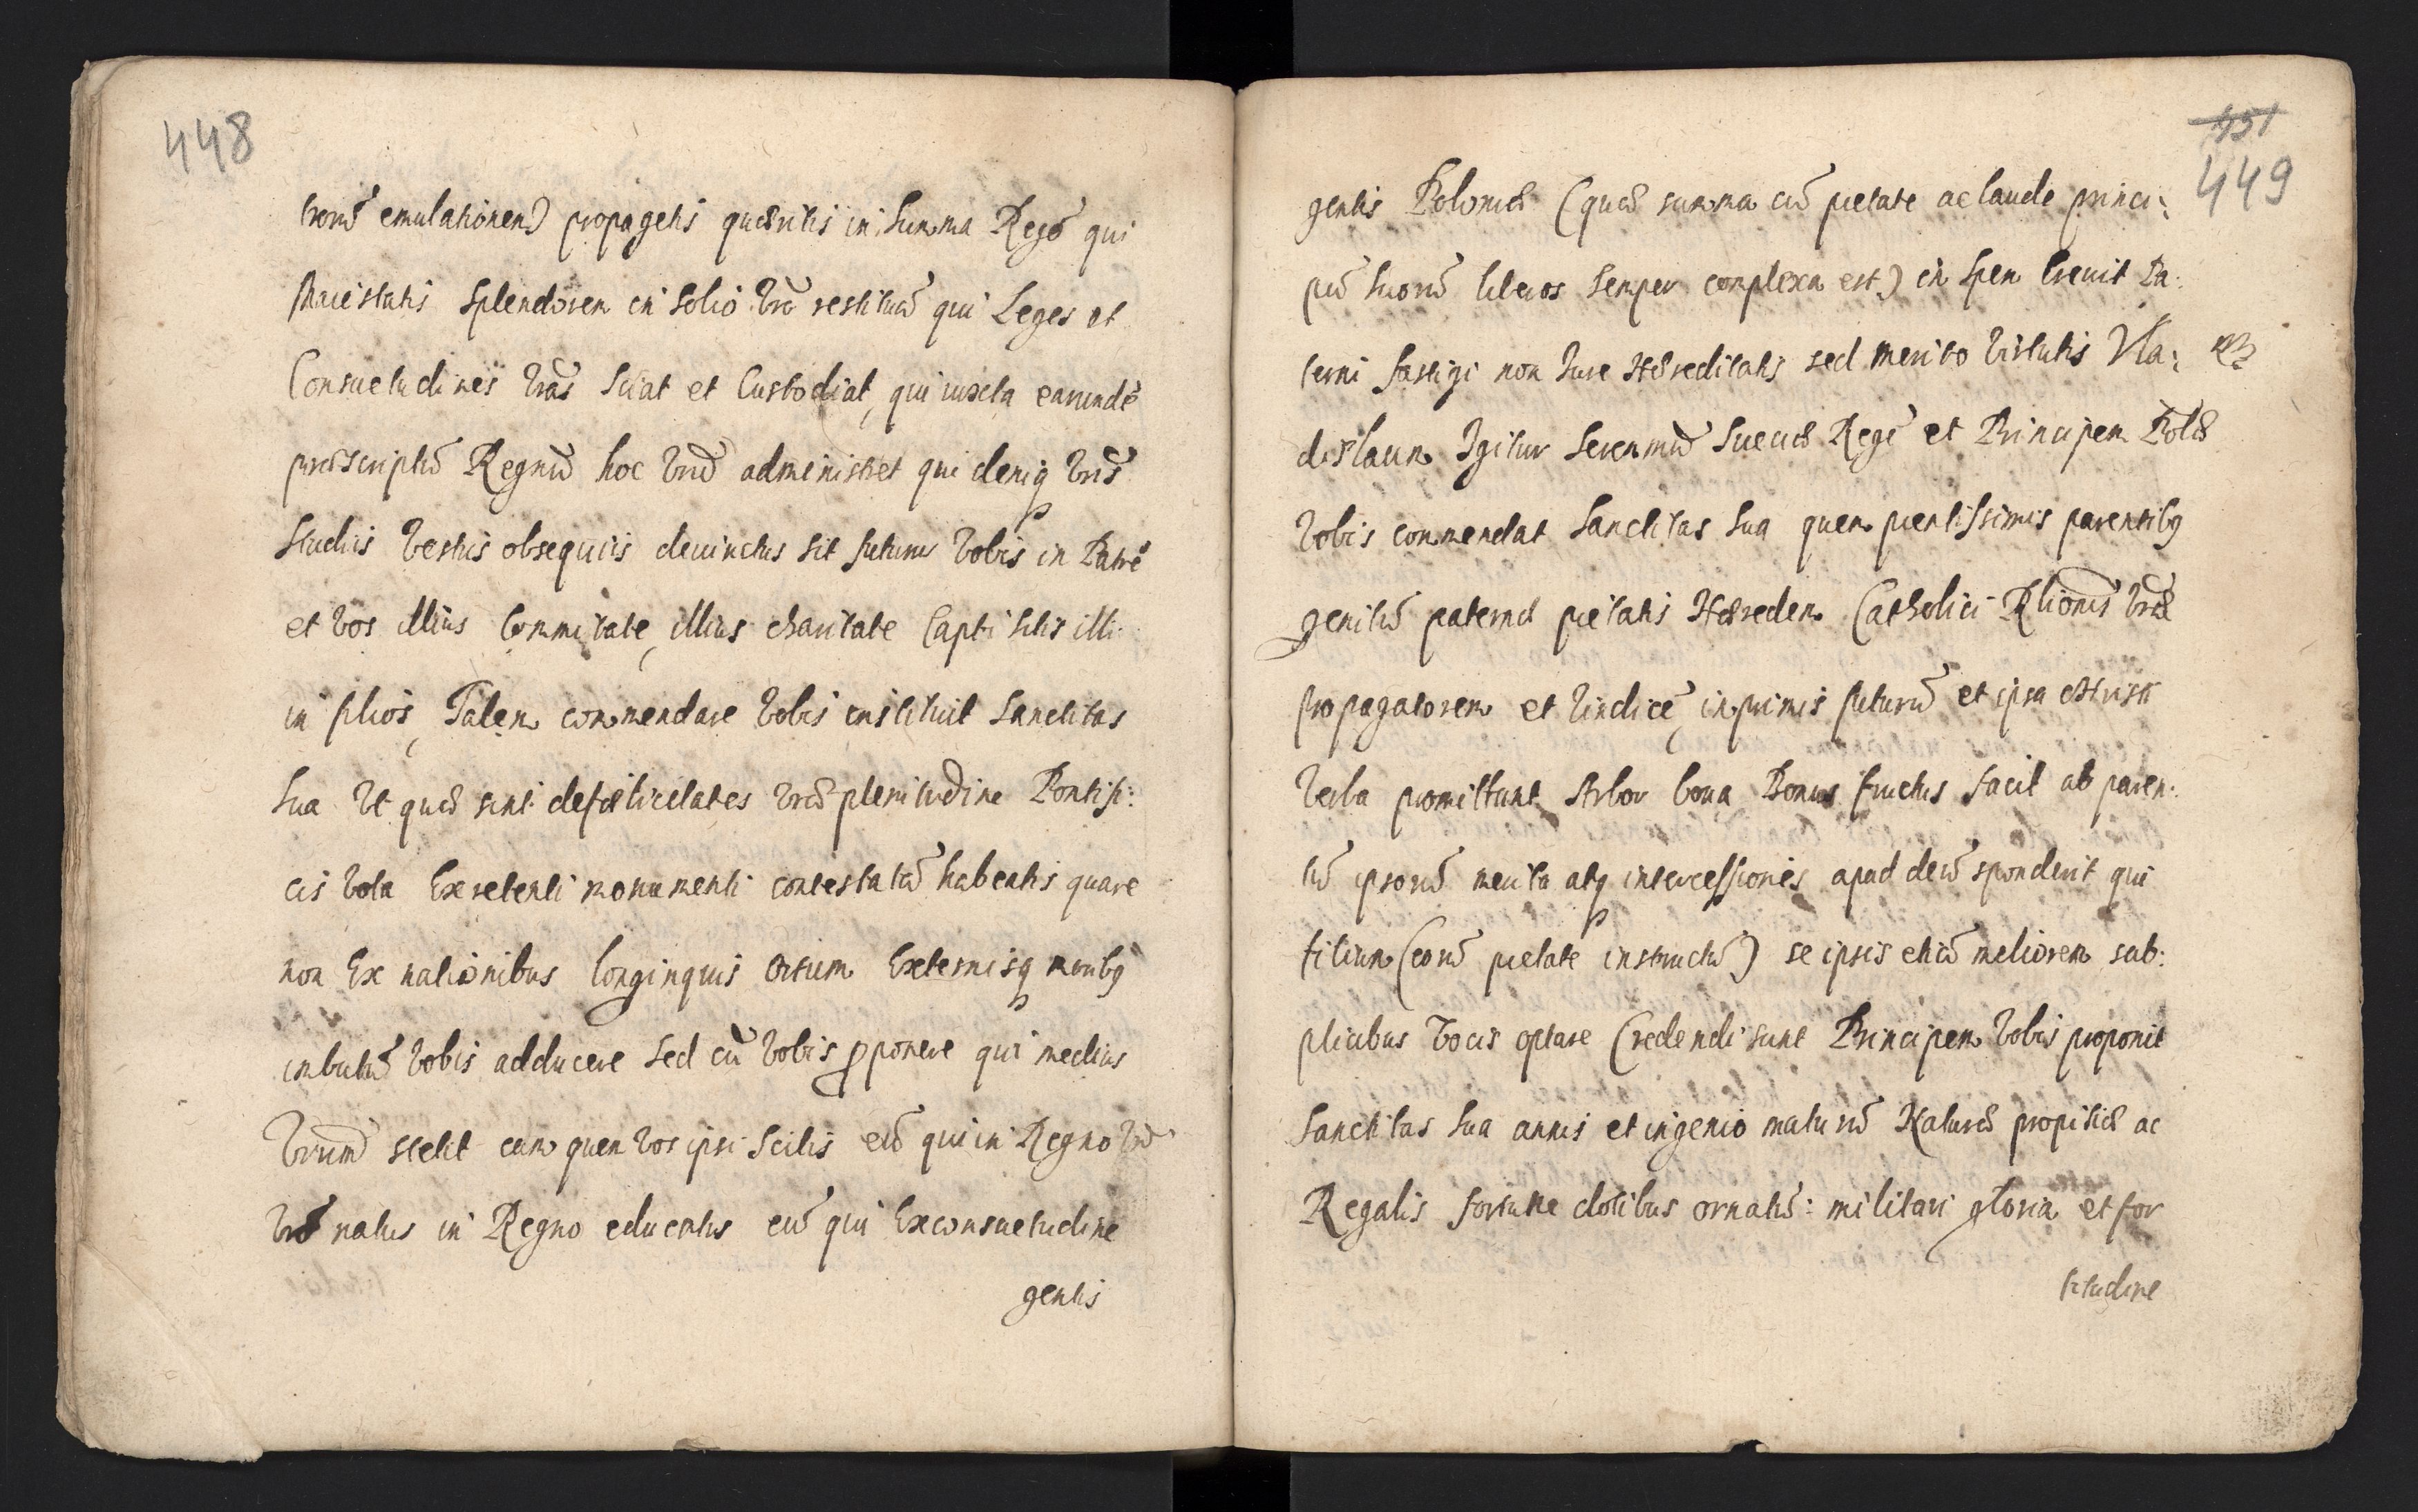 448
trorū emulationem) propagetis quæritis in summa Regē qui
Maiestatis splendorem in solio vrō restituat qui Leges et
Consuetudines vrās sciat et Custodiat, qui iuxta earundē
præscriptū Regnū hoc vrūm administret qui deniq vrīs
studiis vestris obsequiis deuinctus sit futurus vobis in Patrē
et vos illius Commitate, illius charitate Capti sitis illi
in filios, Talem commendare vobis instituit Sanctitas
sua Vt quæ sint de fœlicitates vræ plenitudine Pontifi:
cis vota Ex retenti monumenti contestatū habeatis quare
non Ex nationibus longinquis ortum Externisq moribq
imbutū vobis adducere sed eū vobis proponere qui medius
vrūm stetit eum quem vos ipsi scitis eū qui in Regno vrō
vrō natus in Regno educatus eū qui Ex consuetudine
gentis
451
449
gentis Polonæ (quæ summa cū pietate ac laude princi:
pū suorū liberos semper complexa est) in spem creuit Pa:
terni fastigi non Iure Hæreditatis sed merito virtutis Vla:
dislaum Igitur serenmū Sueciæ Regē et Principem Polæ
vobis commendat Sanctitas sua quem pientissimis parentibq
genitū paternæ pietatis Hæredem Catholici Rlionis vræ
propagatorem et vindicē, inprimis futurū et ipsa Christi
verba promittunt Arbor bona Bonus fructus facit ab paren:
tū ipsorū merita atq intercessiones apud deū spondent qui
filium (eorū pietate instructū) se ipsis etiā meliorem sub:
plicibus vocis optare Credendi sunt Principem vobis proponit
Sanctitas sua annis et ingenio maturū Naturæ propitiæ ac
Regalis fortune dotibus ornatū: militari gloria et for
titudine